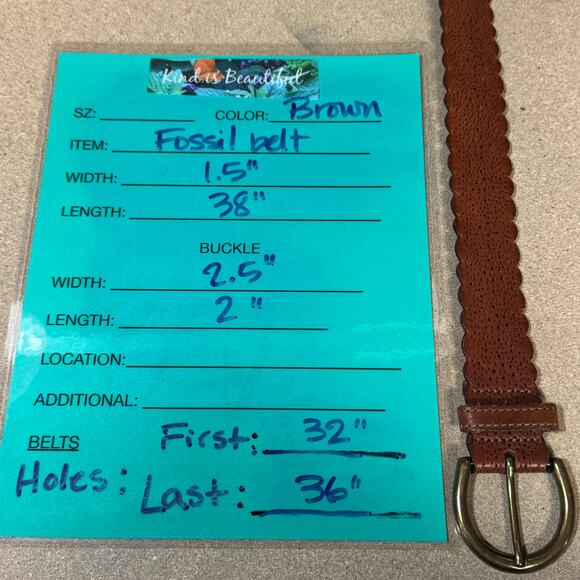 Kind is Beautiful
SZ: COLOR: Brown
ITEM: Fossil belt
WIDTH: 1.5"
LENGTH: 38"
BUCKLE
WIDTH: 2.5"
LENGTH: 2"
LOCATION:
ADDITIONAL:
BELTS First: 32"
Holes: Last: 36"